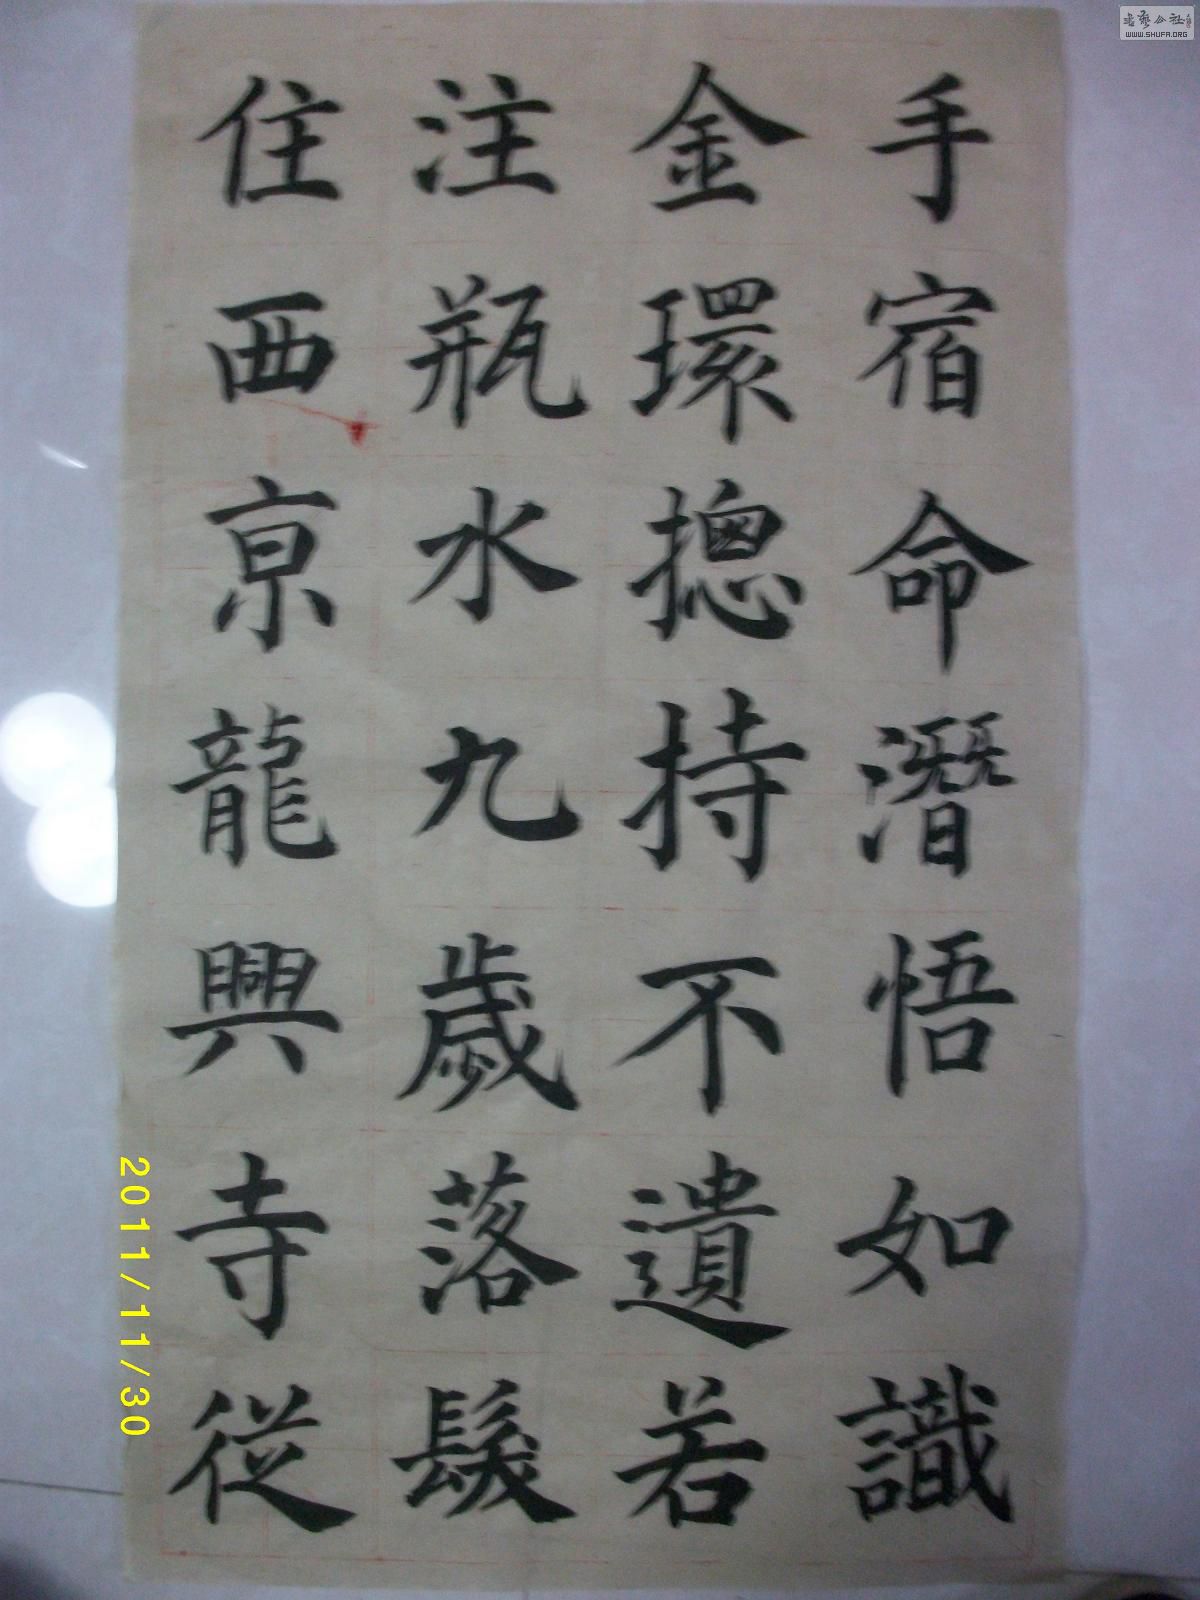 手宿命潛悟如識
金環揔持不遺若
注瓶水九歲落髮
住西京龍興寺從
2011/11/30
WWW.SHUFA.ORG